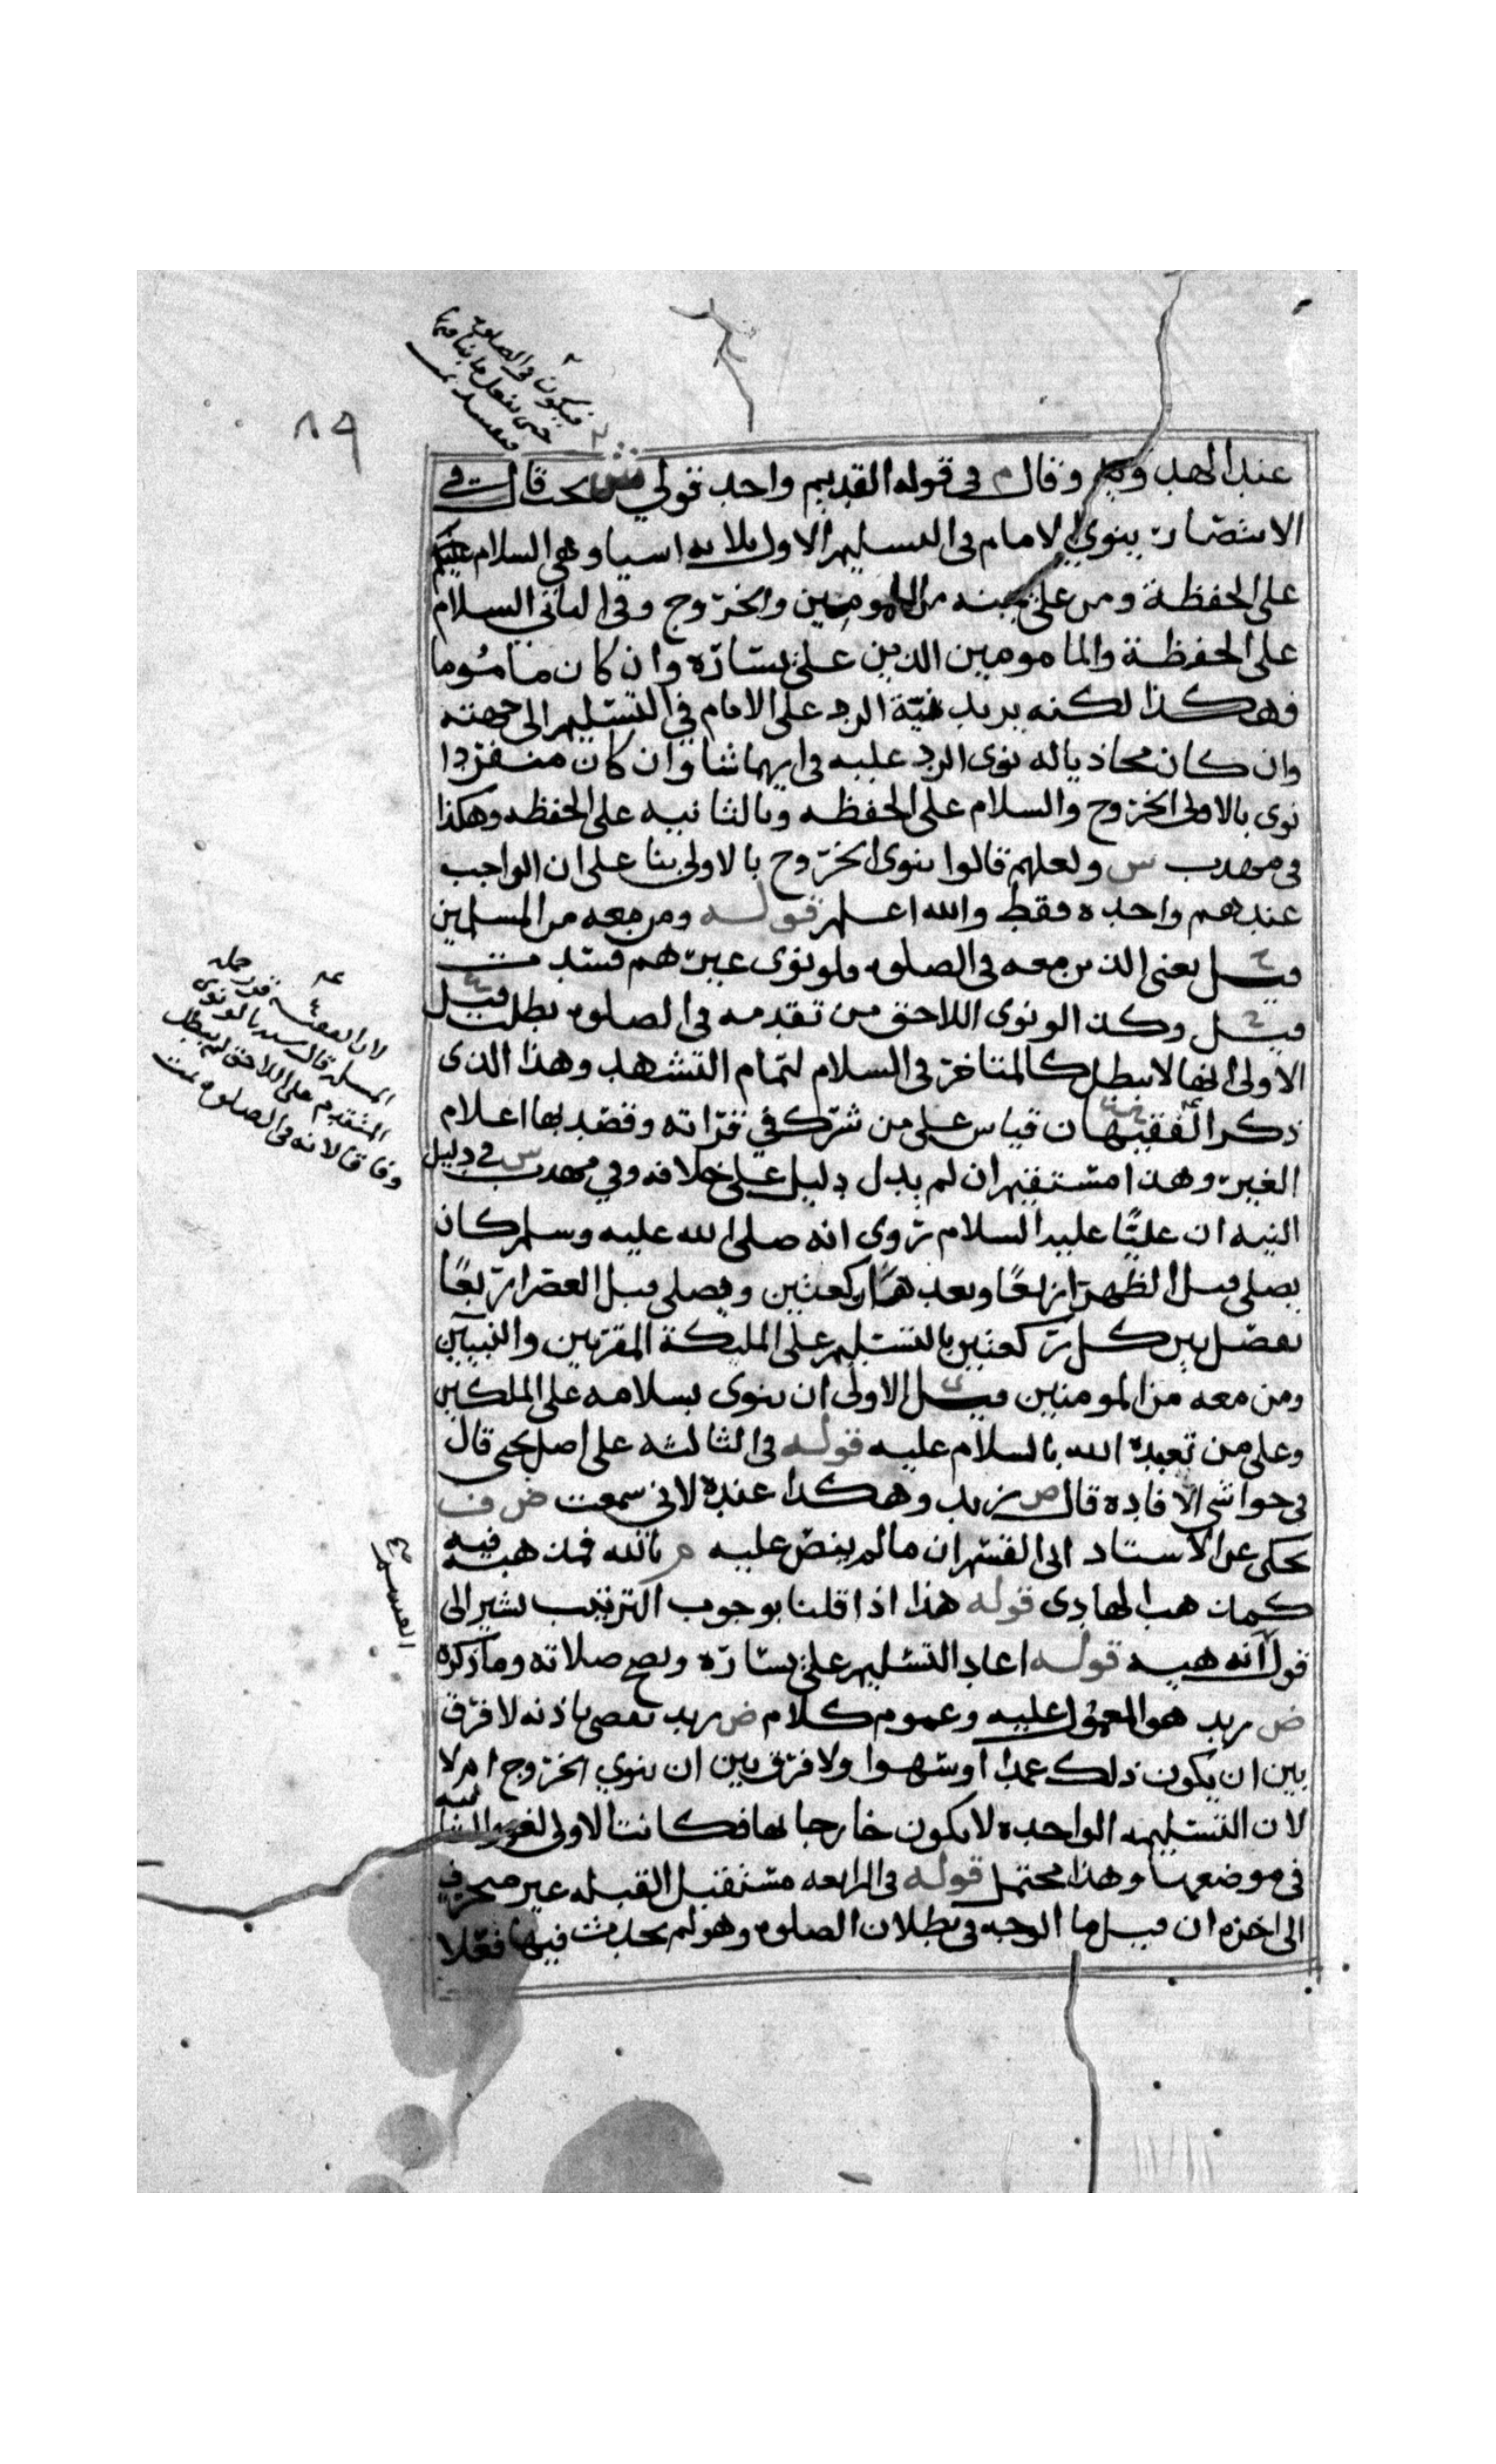 ٨٩
فيكون في الصلوه
حتى يفعل ما ينافيها
عند الهد وقال م في قوله القديم واحد قولي ش بحث قال في
الانتصار ينوي الامام في التسليم الاول بلاثه اسيا وهي السلام
على الحفظة ومن على من والخروج وفي الثاني السلام
على الحفظة والمامومين الذين على يساره وان كان مامُوما
فهكذا لكنه يريد نيّة الرد على الامام في التسليم الى جهته
وان كان محاذيا له نوى الرد عليه في ايهما شا وان كان منفردا
نوى بالاولى الخروح والسلام على الحفظه وبالثانيه على الحفظه وهكذا
في مهدب س ولعلهم قالوا ينوى الخروح بالاولى بنا على ان الواجب
عندهم واحده فقط والله اعلم قوله ومن معه من المسلمين
قيل يعنى الذين معه في الصلوه ولو نوى غيرهم فسدت
قيل وكذا لو نوى اللاحق من تقدمه في الصلوه بطلت قيل
الاولى انها لا تبطل كالمتاخر في السلام لتمام التشهد وهذا الذى
ذكر الفقيهان قياس على من شرك في قراته وقصد بها اعلام
الغير وهذا مستقيم ان لم يدل دليل على خلافه وفي مهدب س في دليل
النيه ان عليًّا عليه السلام روى انه صلى الله عليه وسلم كان
يصلى قبل الظهر اربعًا وبعدها ركعتين ويصلى قبل العصر اربعًا
يفصل بين كل ركعتين بالتسليم على المليكة المقربين والنبيين
ومن معه من المومنين قيل الاولى ان ينوى بسلامه على الملكين
وعلى من تعبده الله بالسلام عليه قوله في الثالثه على اصل يحى قال
في حواشى الافاده قال ص زيد وهكدا عنده لاني سمعت ض ف
يحكى عن الاستاد ابى القسم ان ما لم ينص عليه م بالله فمذهبه فيه
كمذهب الهادى قوله هذا اذا قلنا بوجوب الترتيب يشير الى
قول انه هيه قوله اعاد التسليم على يساره وتصح صلاته وما ذكره
ض زيد هو المعول عليه وعموم كلام ض زيد يقضى باذنه لا فرق
بين ان يكون ذلك عمدا او سهوا ولا فرق بين ان ينوي الخروج ام لا
لان التسليمه الواحده لا يكون خارجا بها فكانت الاولى لغوا والثانيه
في موضعها وهذا محتمل قوله في الرابعه مستقبل القبله غير منحرف
الى اخره ان قيل ما الوجه في بطلان الصلوه وهو لم يحدث فيها فعلا
لان الفقيه
المسله قال سيدنا لو نوى
المتقدم على اللاحق لم يبطل
وفاقا لانه في الصلوه تمت